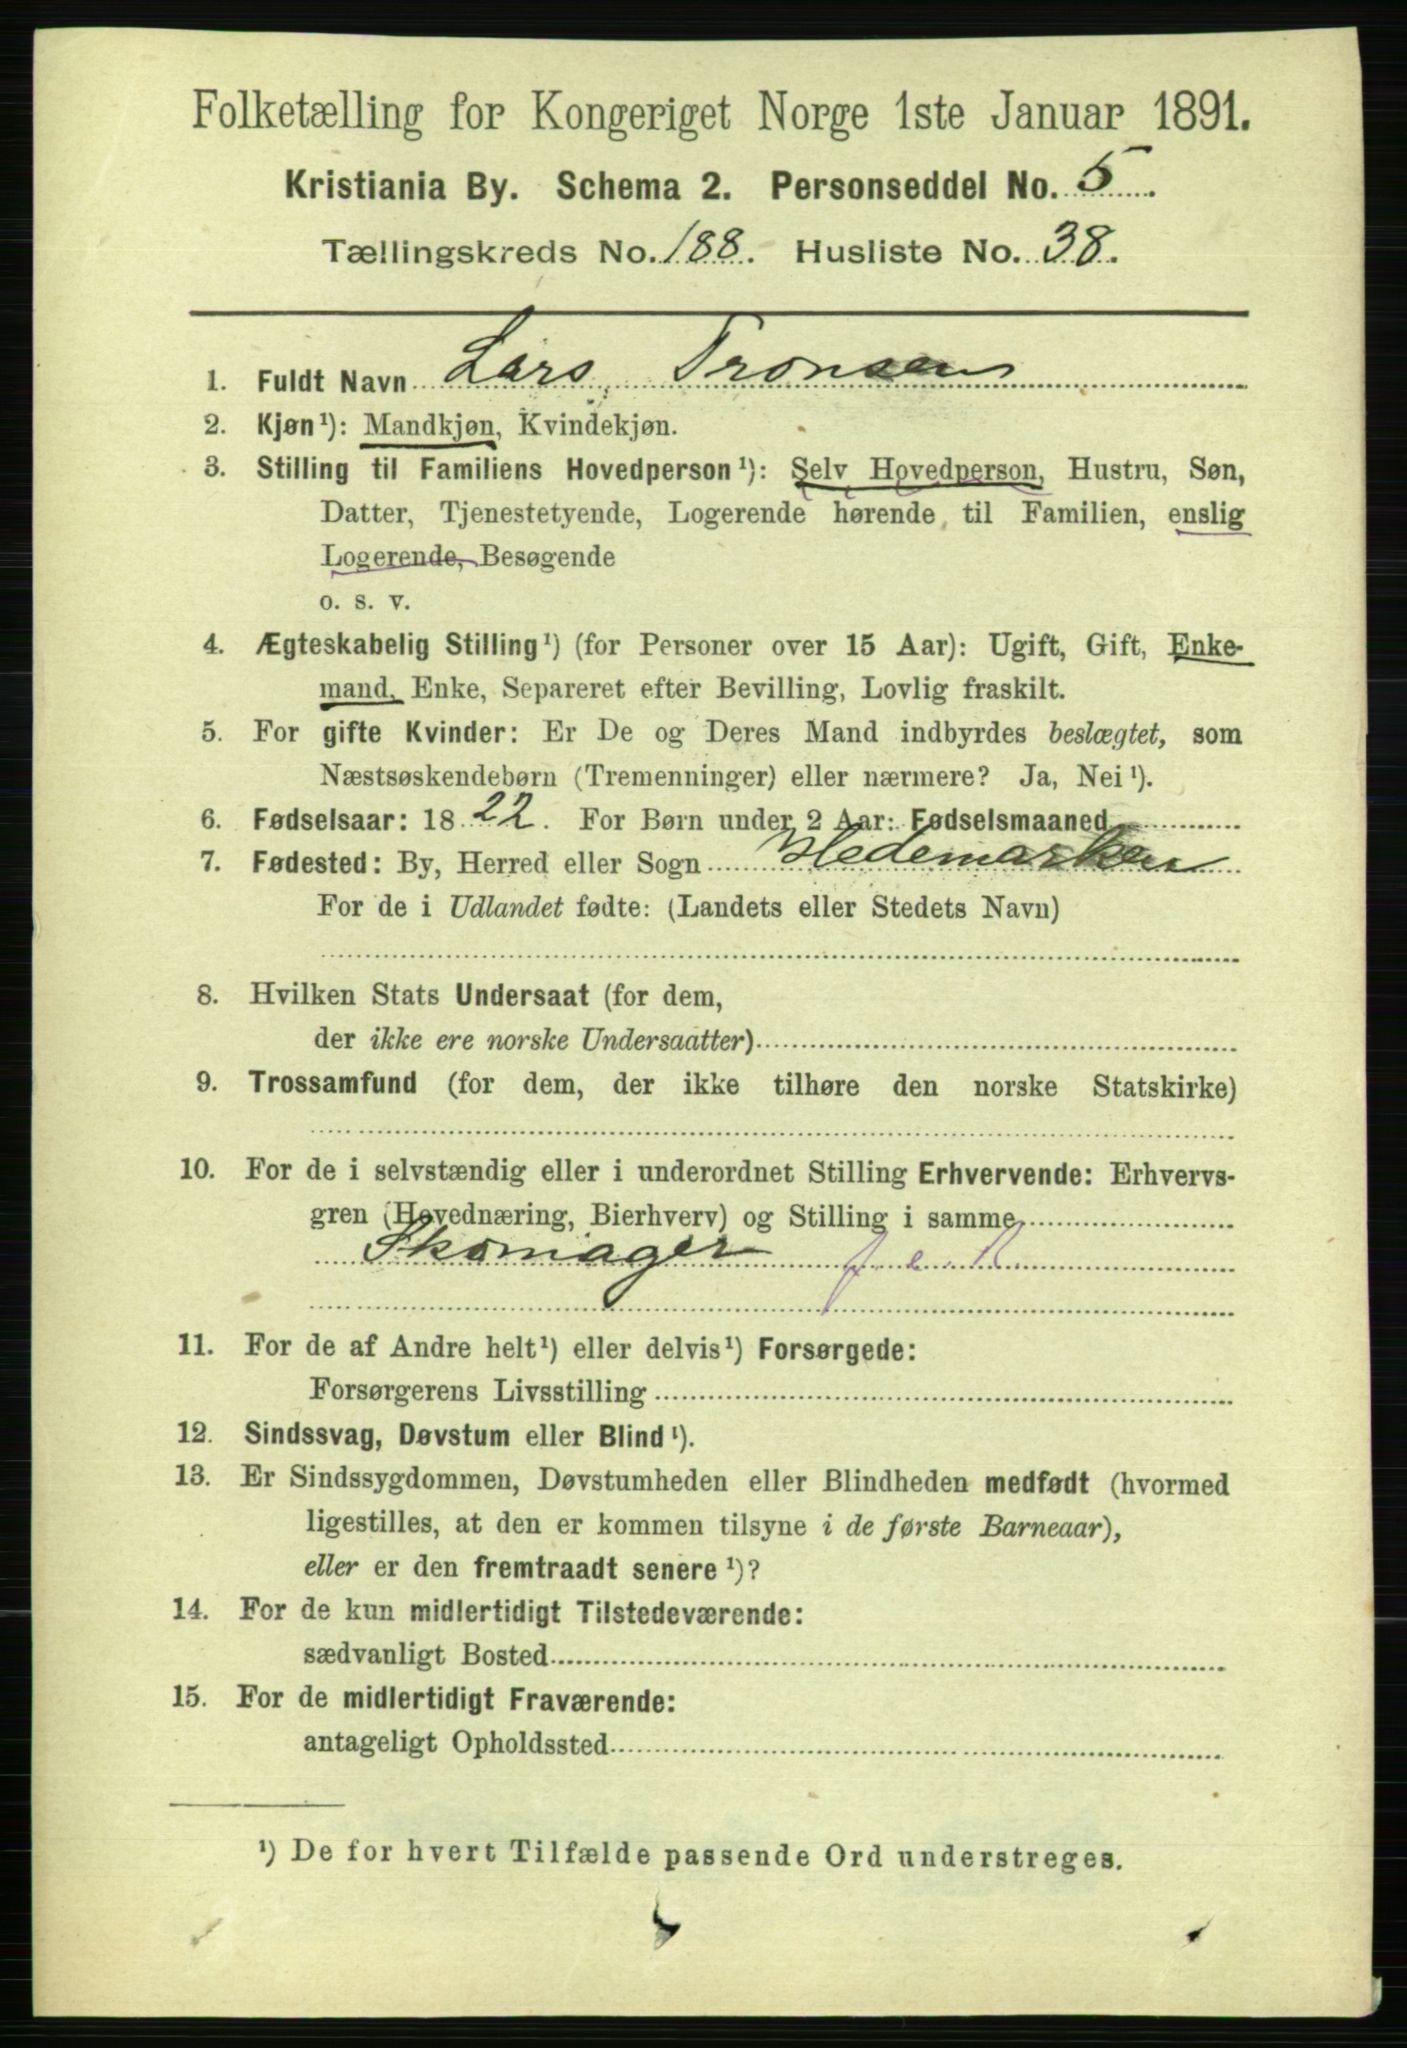 Folketælling for Kongeriget Norge 1ste Januar 1891.
Kristiania By. Schema 2. Personseddel No. 5.
Tællingskreds No. 188. Husliste No. 38.
1. Fuldt Navn Lars Tronsen
2. Kjøn¹): Mandkjøn, Kvindekjøn.
3. Stilling til Familiens Hovedperson¹): Selv Hovedperson, Hustru, Søn,
Datter, Tjenestetyende, Logerende hørende til Familien, enslig
Logerende, Besøgende
o. s. v.
4. Ægteskabelig Stilling¹) (for Personer over 15 Aar): Ugift, Gift, Enke-
mand, Enke, Separeret efter Bevilling, Lovlig fraskilt.
5. For gifte Kvinder: Er De og Deres Mand indbyrdes beslægtet, som
Næstsøskendebørn (Tremenninger) eller nærmere? Ja, Nei¹).
6. Fødselsaar: 1822. For Børn under 2 Aar: Fødselsmaaned
7. Fødested: By, Herred eller Sogn Hedemarken
For de i Udlandet fødte: (Landets eller Stedets Navn)
8. Hvilken Stats Undersaat (for dem,
der ikke ere norske Undersaatter)
9. Trossamfund (for dem, der ikke tilhøre den norske Statskirke)
10. For de i selvstændig eller i underordnet Stilling Erhvervende: Erhvervs-
gren (Hovednæring, Bierhverv) og Stilling i samme
Skomager
11. For de af Andre helt¹) eller delvis¹) Forsørgede:
Forsørgerens Livsstilling
12. Sindssvag, Døvstum eller Blind¹).
13. Er Sindssygdommen, Døvstumheden eller Blindheden medfødt (hvormed
ligestilles, at den er kommen tilsyne i de første Barneaar),
eller er den fremtraadt senere¹)?
14. For de kun midlertidigt Tilstedeværende:
sædvanligt Bosted
15. For de midlertidigt Fraværende:
antageligt Opholdssted
¹) De for hvert Tilfælde passende Ord understreges.